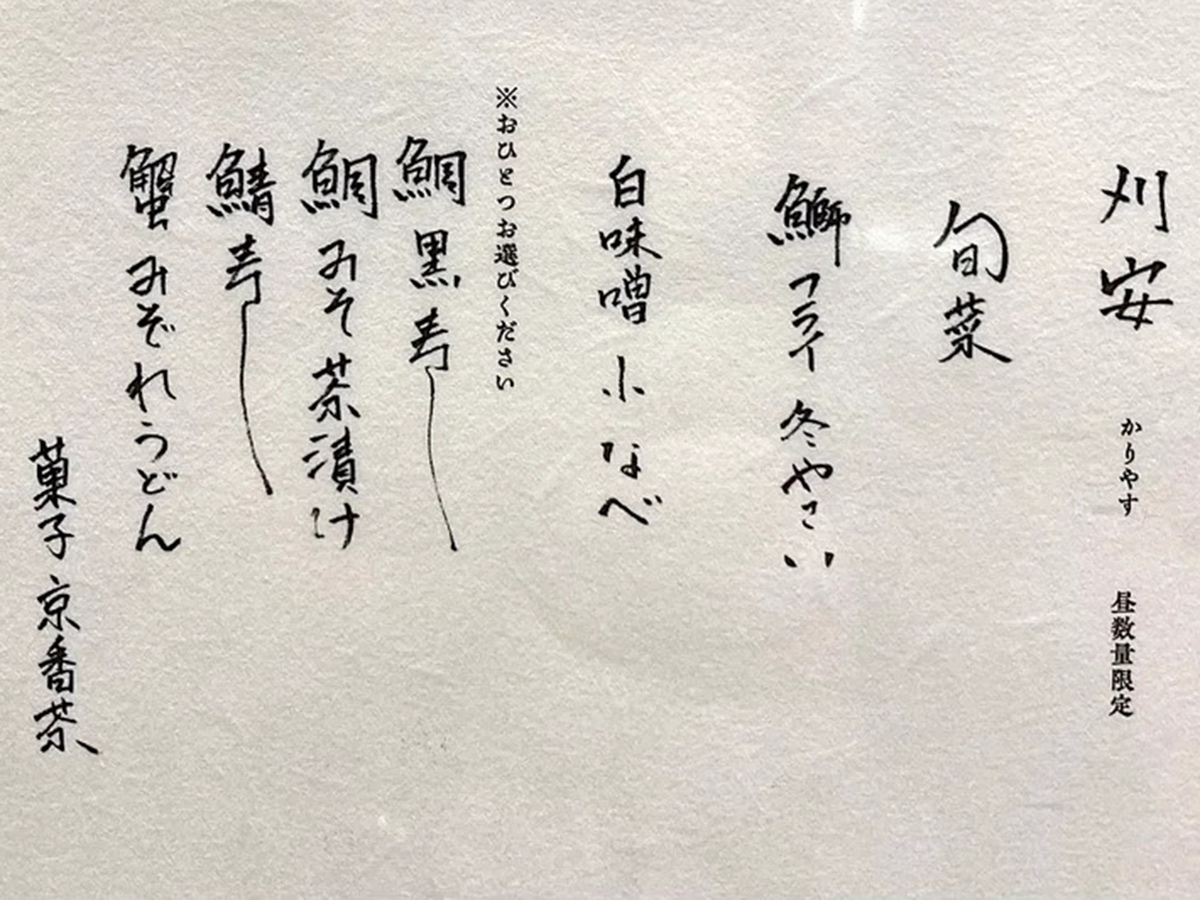 刈安 かりやす 昼数量限定
旬菜
鰤フライ 冬やさい
白味噌小なべ
※おひとつお選びください
鯛黒寿し
鯛みそ茶漬け
鯖寿し
蟹みぞれうどん
菓子 京番茶